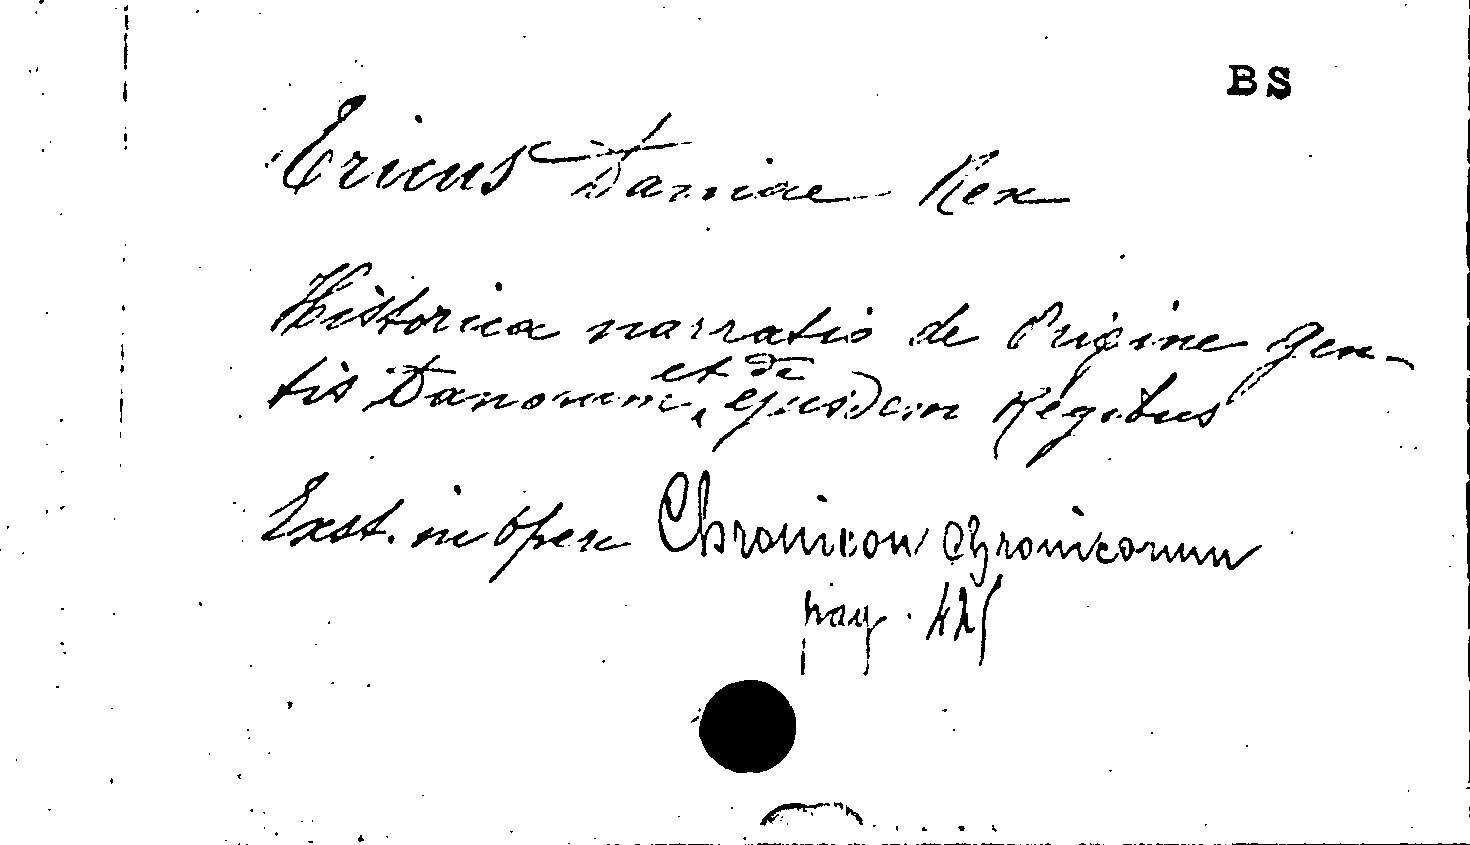 BS
Ericus Daniae Rex
Historica narratio de Origine gen-
tis Danorum et de ejusdem Regibus
Exst. in Opere Chronicon Chronicorum
pag. 425